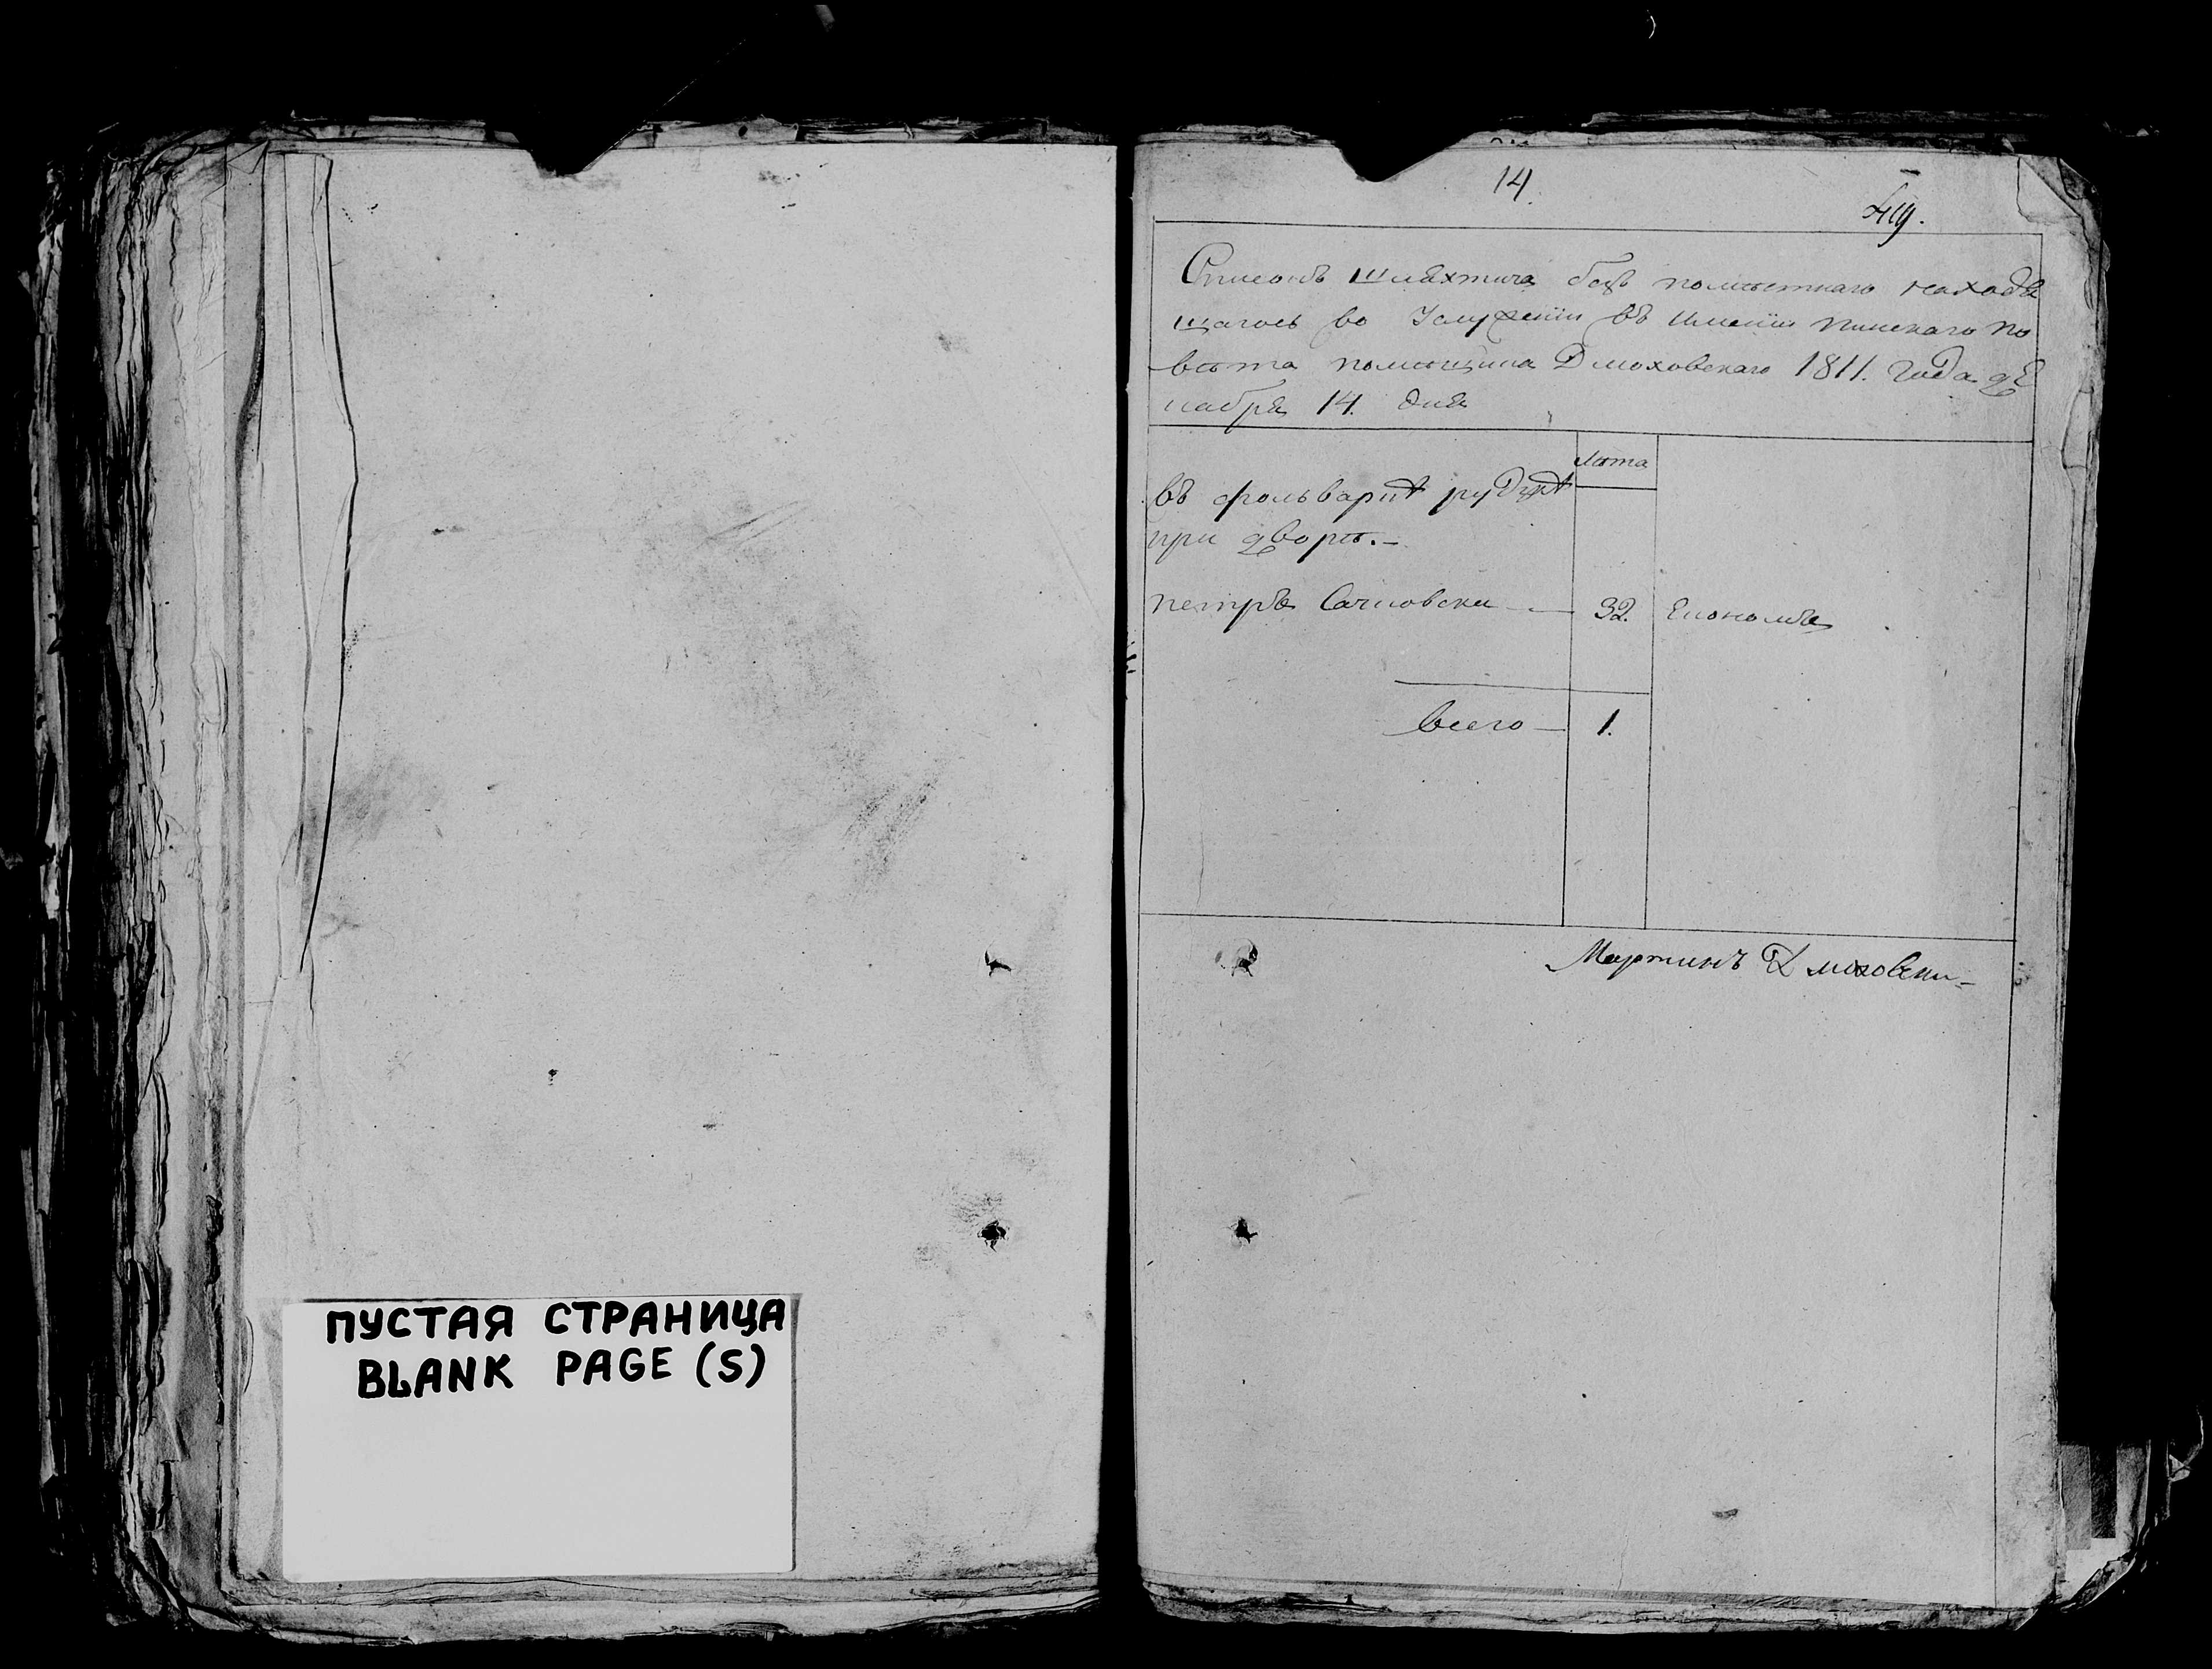 ПУСТАЯ СТРАНИЦА
BLANK PAGE (S)
14.
Списокъ шляхтича безъ помѣстнаго находя
щагось во Услуженіи въ имѣніи пинскаго по
вѣта помѣщика Дмоховскаго 1811. года де
кабря 14. дня
Лѣта
въ фольваркѣ рудкѣ
при дворѣ.—
петръ Сачковски — 32. Економъ
Всего — 1.
Мартинъ Дмоховски